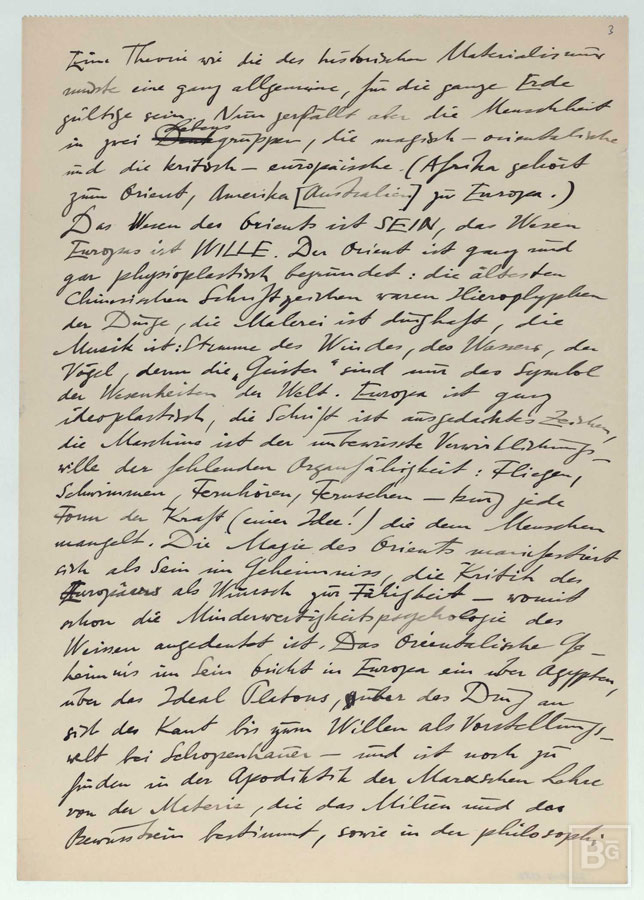 3
Eine Theorie wie die des historischen Materialismus
müsste eine ganz allgemeine, für die ganze Erde
gültige sein. Nun zerfällt aber die Menschheit
Lebens
in zwei Denkgruppen, die magisch-orientalische
und die kritisch-europäische. (Afrika gehört
zum Orient, Amerika [Australien] zu Europa.)
Das Wesen des Orients ist SEIN, das Wesen
Europas ist WILLE. Der Orient ist ganz und
gar physioplastisch begründet: die ältesten
Chinesischen Schriftzeichen waren Hieroglyphen
der Dinge, die Malerei ist dinghaft, die
Musik ist: Stimme des Windes, des Wassers, der
Vögel, denn die „Geister" sind nur das Symbol
der Wesenheiten der Welt. Europa ist ganz
ideoplastisch, die Schrift ist ausgedachtes Zeichen,
die Maschine ist der unbewusste Verwirklichungs-
wille der fehlenden Organfähigkeit: Fliegen,
Schwimmen, Fernhören, Fernsehen – kurz jede
Form der Kraft (einer Idee!) die dem Menschen
mangelt. Die Magie des Orients manifestiert
sich als Sein im Geheimniss, die Kritik des
Europäers als Wunsch zur Fähigkeit – womit
schon die Minderwertigkeitspsychologie des
Weissen angedeutet ist. Das Orientalische Ge-
heimnis im Sein bricht in Europa ein über Ägypten,
über das Ideal Platons, über das Ding an
sich des Kant bis zum Willen als Vorstellungs-
welt bei Schopenhauer – und ist noch zu
finden in der Apodiktik der Marxschen Lehre
von der Materie, die das Milieu und das
Bewusstsein bestimmt, sowie in der philosophi-
BG